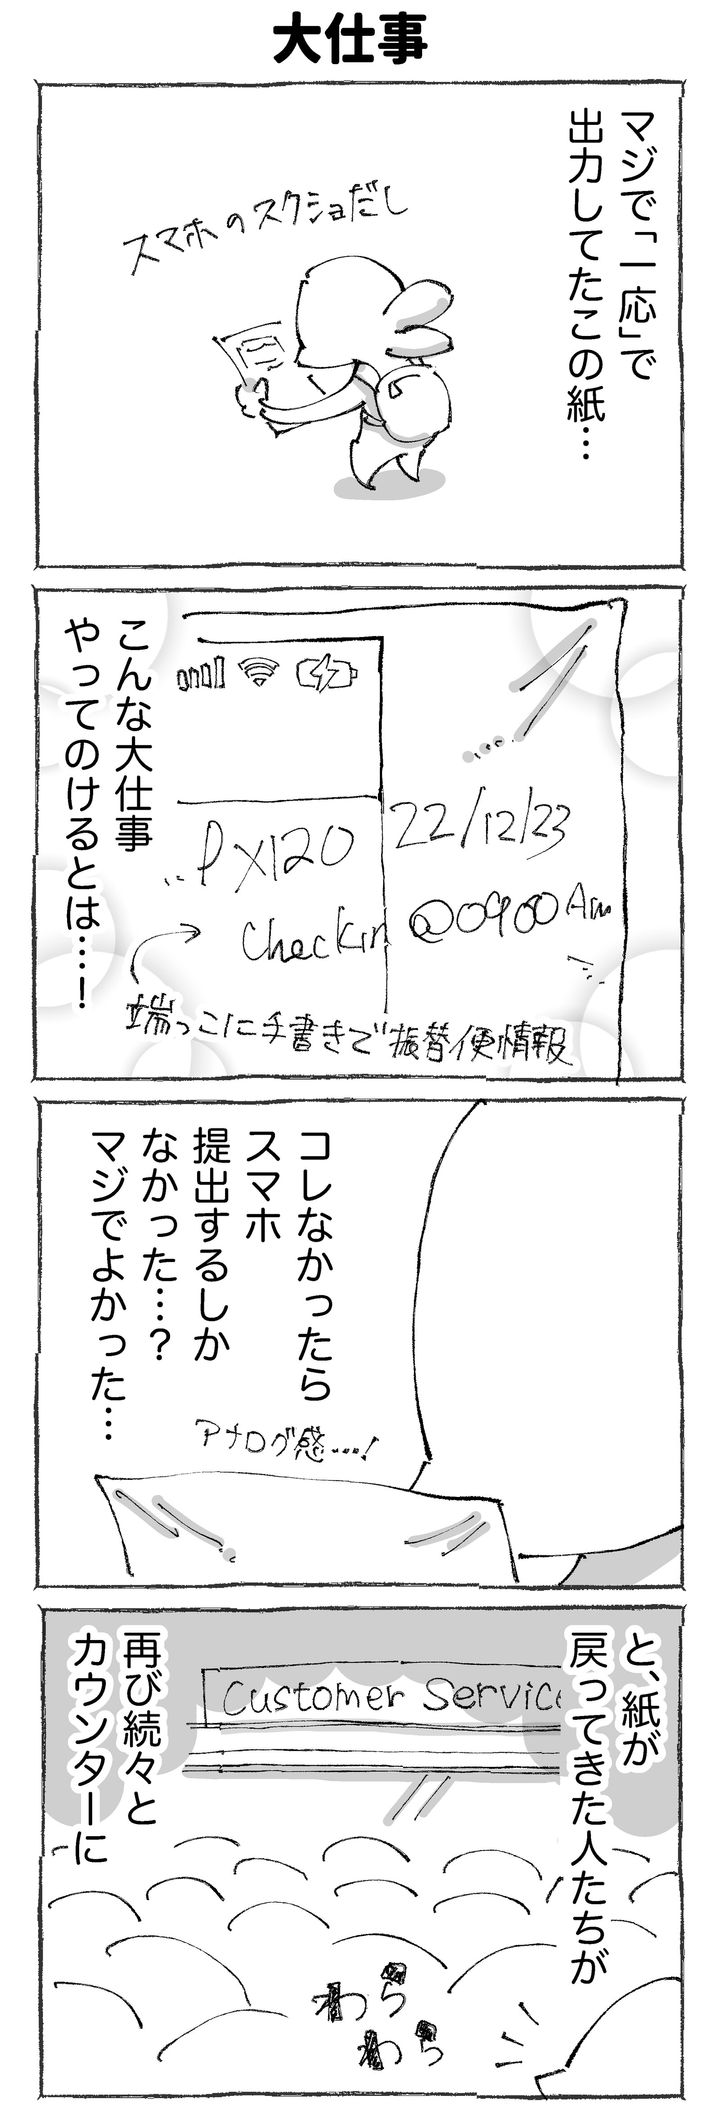 大仕事
マジで「一応」で
出力してたこの紙…
スマホのスクショだし
22/12/23
PX120
Checkin @0900Am
こんな大仕事
やってのけるとは…！
端っこに手書きで振替便情報
コレなかったら
スマホ
提出するしか
なかった…？
マジでよかった…
アナログ感…!
と、紙が
戻ってきた人たちが
Customer Service
再び続々と
カウンターに
わら
わら